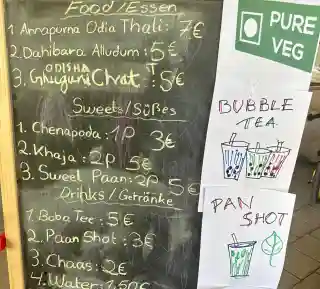 Food/Essen
1 Annapurna Odia Thali: 7€
2. Dahibara Alludum: 5€
ODISHA
3. Ghuguni Chat: 5€
Sweets/Süßes
1. Chenapoda: 1P 3€
2. Khaja: 2P 5€
3. Sweet Paan: 2P 5€
Drinks/Getränke
1. Boba Tee: 5€
2. Paan Shot: 3€
3. Chaas: 2€
4. Water: 1,50€
PURE
VEG
BUBBLE
TEA
PAN
SHOT